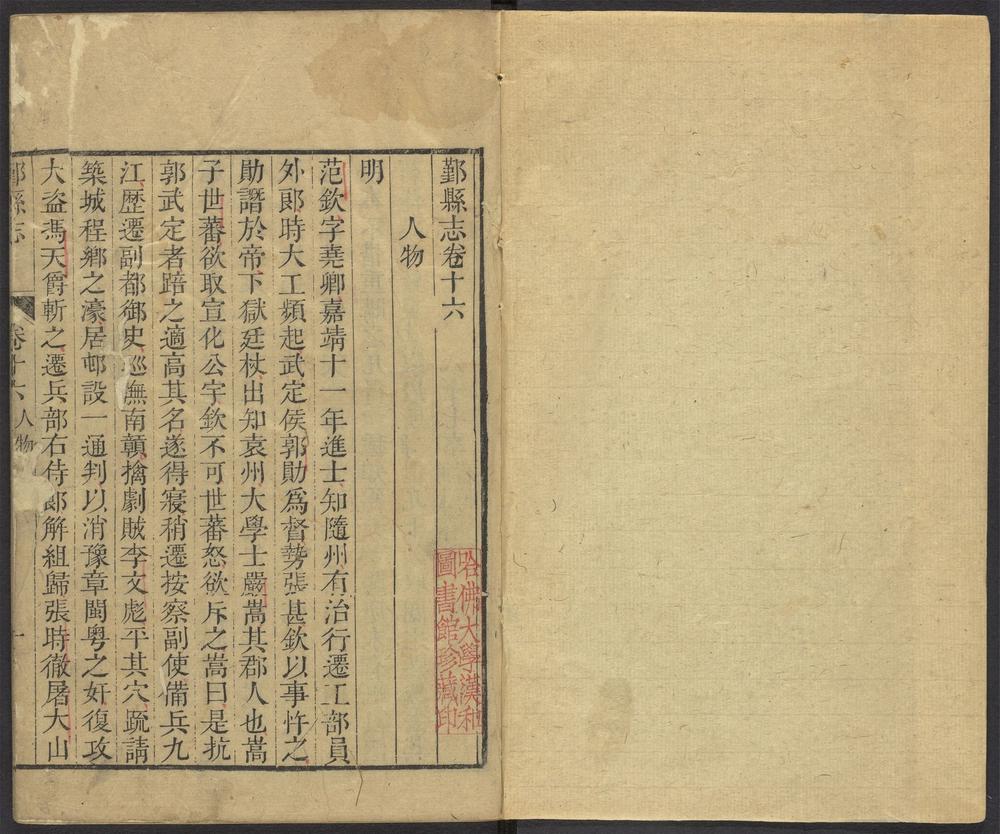 鄞縣志卷十六
人物
明
范欽字堯卿嘉靖十一年進士知隨州有治行遷工部員
外郎時大工頻起武定侯郭勛爲督勢張甚欽以事忤之
勛譖於帝下獄廷杖出知袁州大學士嚴嵩其郡人也嵩
子世蕃欲取宣化公宇欽不可世蕃怒欲斥之嵩曰是抗
郭武定者踣之適高其名遂得寢稍遷按察副使備兵九
江歷遷副都御史巡撫南贛擒劇賊李文彪平其穴疏請
築城程鄉之濠居邨設一通判以消豫章閩粵之奸復攻
大盜馮天爵斬之遷兵部右侍郎解組歸張時徹屠大山
鄞縣志
卷十六 人物
一
哈佛大學漢和
圖書館珍藏印